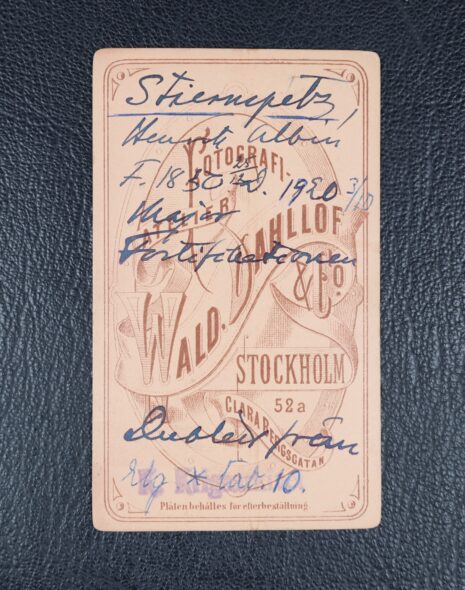 Stiernspetz,
Henrik Albin
F. 1850 25/12 D. 1920 3/10
Major
Fortifikationen
FOTOGRAFI-
ATELIER
WALD. DAHLLÖF
& Co.
STOCKHOLM
52a
CLARA BERGSGATAN
Dublett från
10.
Plåten behålles för efterbeställning